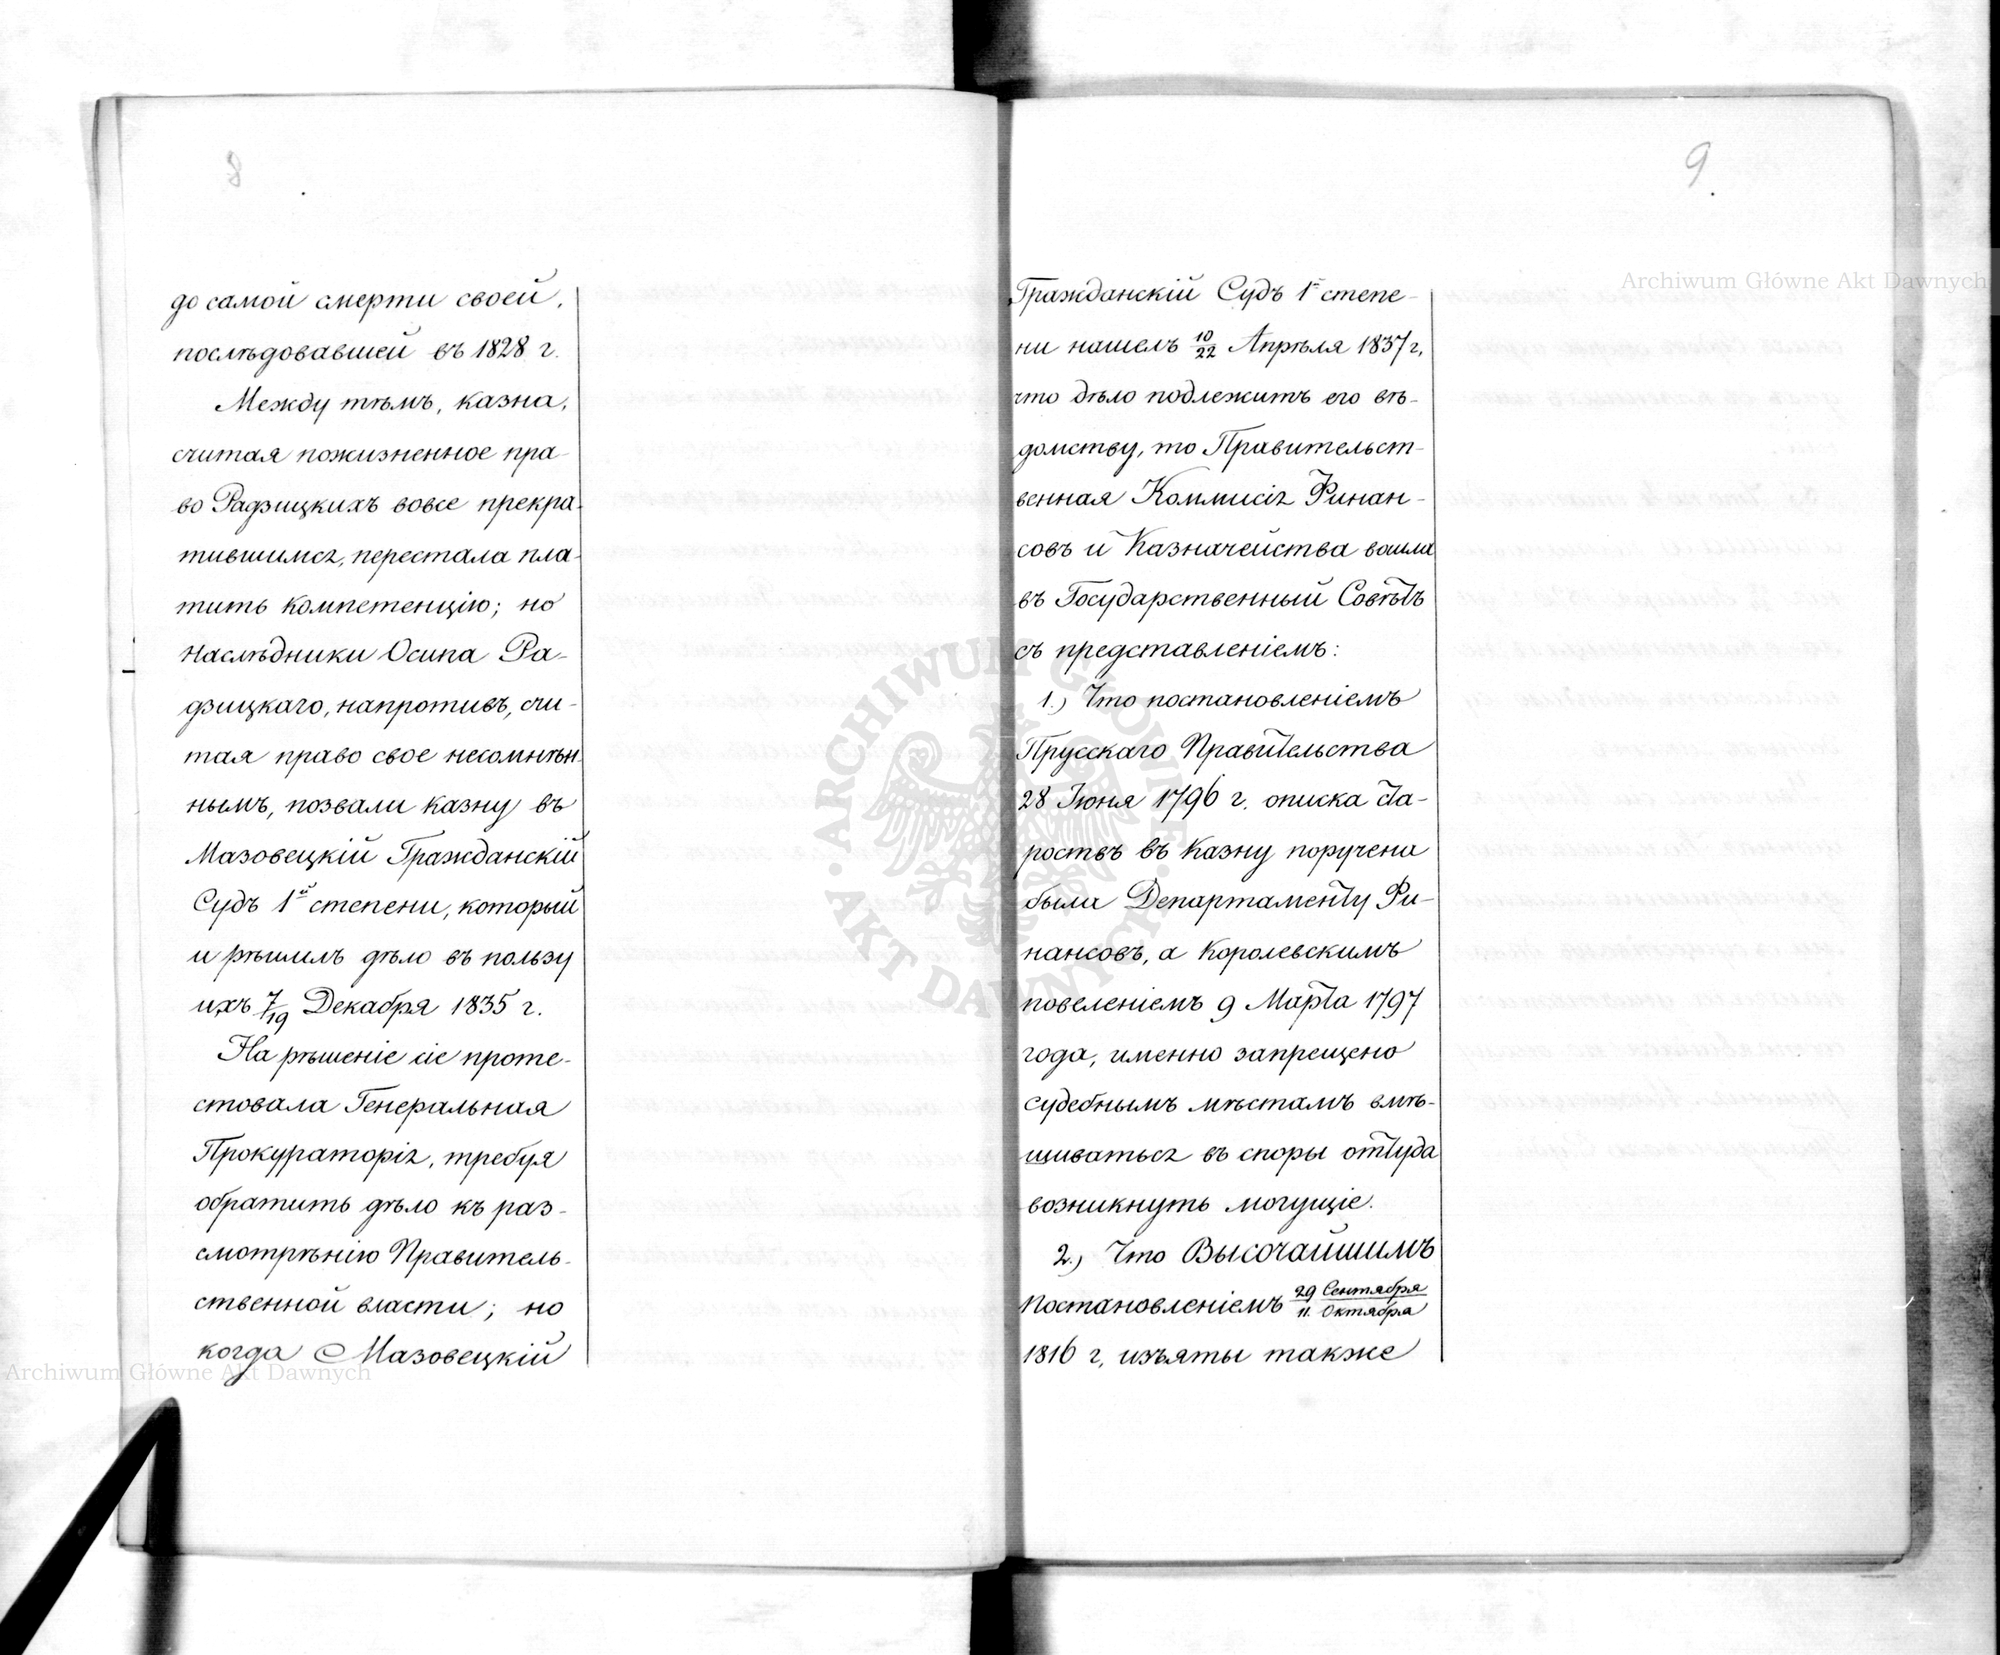 8
до самой смерти своей,
послѣдовавшей въ 1828 г.
Между тѣмъ, казна,
считая пожизненное пра-
во Радзицкихъ вовсе прекра-
тившимся, перестала пла-
тить компетенцію; но
наслѣдники Осипа Ра-
дзицкаго, напротивъ, счи-
тая право свое несомнѣн-
нымъ, позвали казну въ
Мазовецкій Гражданскій
Судъ 1й степени, который
и рѣшилъ дѣло въ пользу
ихъ 7/19 Декабря 1835 г.
На рѣшеніе сіе проте-
стовала Генеральная
Прокураторія, требуя
обратить дѣло къ раз-
смотрѣнію Правитель-
ственной власти; но
когда Мазовецкій
9
Гражданскій Судъ 1й степе-
ни нашелъ 10/22 Апрѣля 1837 г,
что дѣло подлежитъ его вѣ-
домству, то Правительст-
венная Коммисія Финан-
совъ и Казначейства вошла
въ Государственный Совѣтъ
съ представленіемъ:
1.) Что постановленіемъ
Прусскаго Правительства
28 Іюня 1796 г. описка ста-
роствъ въ казну поручена
была Департаменту Фи-
нансовъ, а Королевскимъ
повеленіемъ 9 Марта 1797
года, именно запрещено
судебнымъ мѣстамъ вмѣ-
шиваться въ споры оттуда
возникнуть могущіе.
2.) Что Высочайшимъ
постановленіемъ 29 Сентября/11. Октября
1816 г, изъяты также
Archiwum Główne Akt Dawnych
Archiwum Główne Akt Dawnych
ARCHIWUM GŁÓWNE AKT DAWNYCH